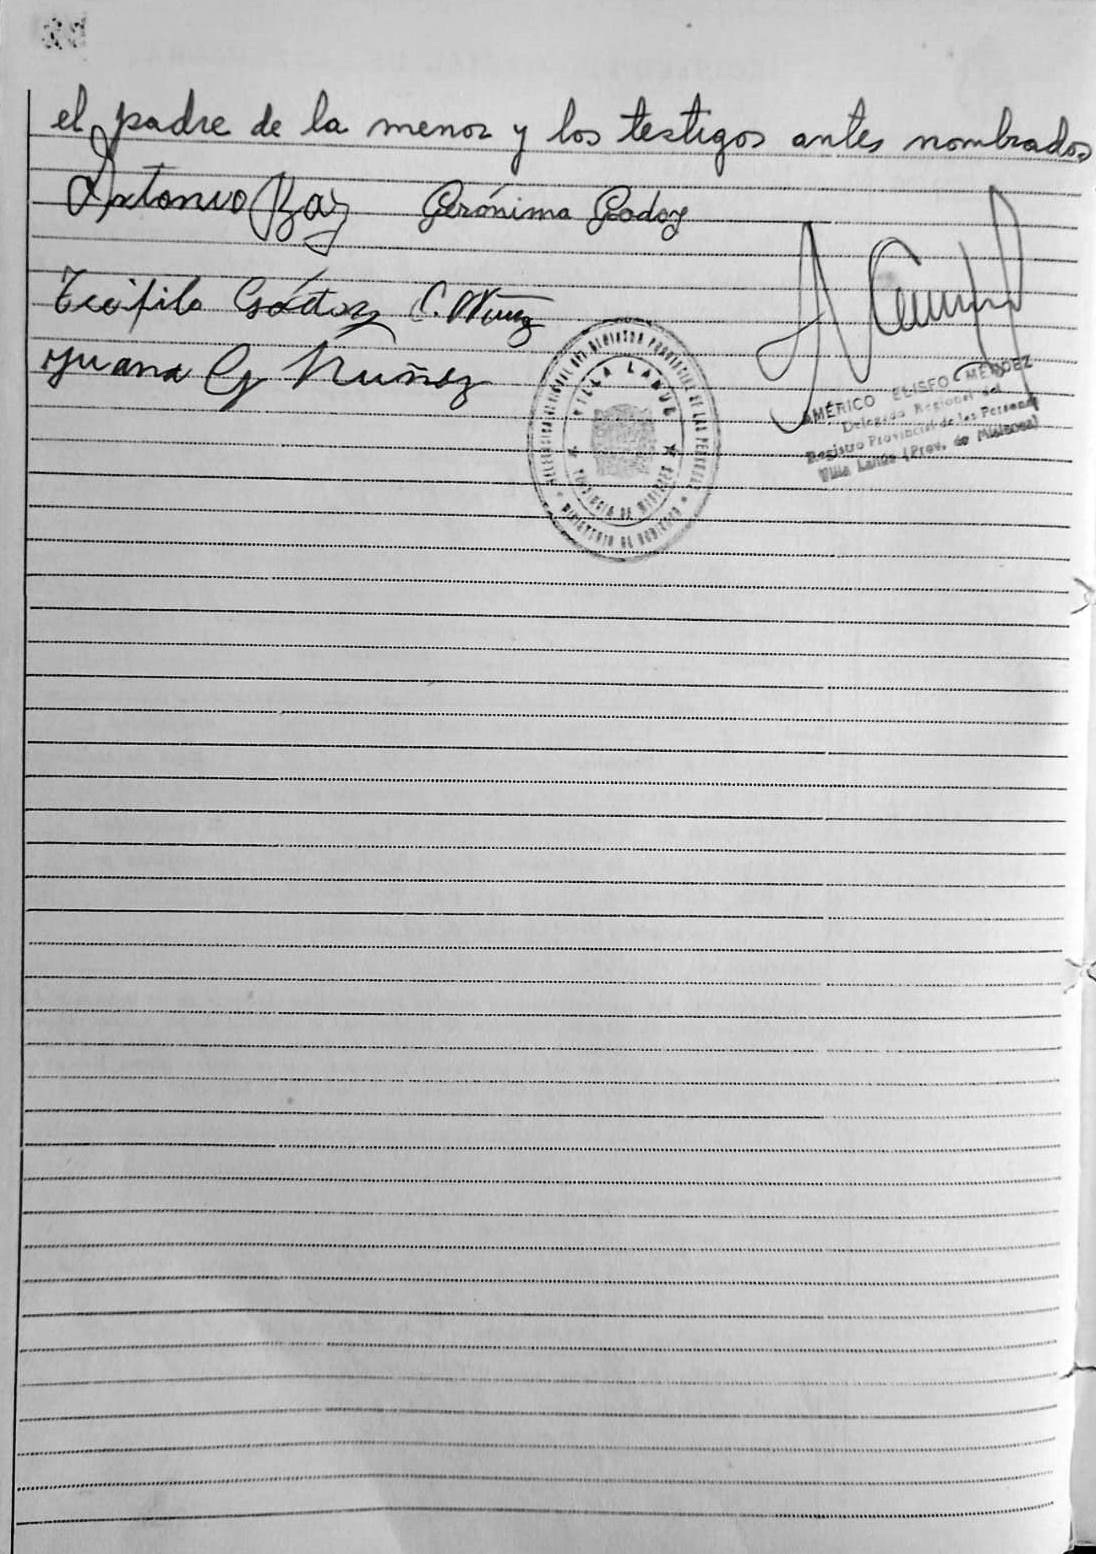 el padre de la menor y los testigos antes nombrados
Antonio Paz Gerónima Godoy
Teófilo Godoy C. Núñez
Juana G Núñez
VILLA LANUS
PROVINCIA DE MISIONES
MINISTERIO DE GOBIERNO
AMÉRICO ELISEO MÉNDEZ
Delegado Regional del
Registro Provincial de las Personas
Villa Lanús (Prov. de Misiones)